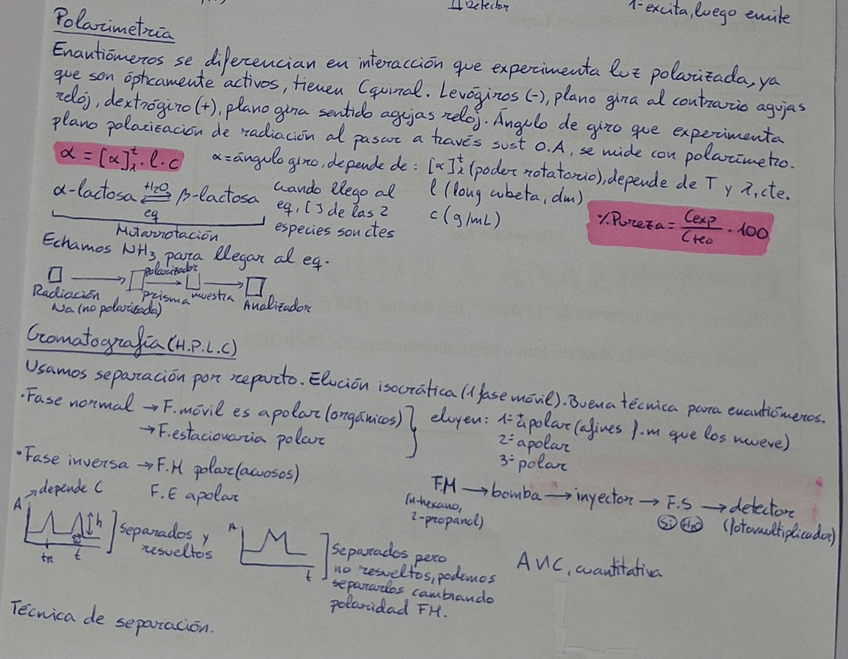 Detector
1-excita, luego emite
Polarimetría
Enantiómeros se diferencian en interacción que experimenta luz polarizada, ya
que son ópticamente activos, tienen Cquiral. Levógiros (-), plano gira al contrario agujas
reloj, dextrógiro (+), plano gira sentido agujas reloj. Ángulo de giro que experimenta
plano polarización de radiación al pasar a través sust O.A, se mide con polarímetro.
α = [α]ᵗλ · l · c
α = ángulo giro, depende de: [α]ᵗλ (poder rotatorio), depende de T y λ, cte.
l (long cubeta, dm)
c (g/mL)
α-lactosa ⇌ β-lactosa
H2O
eq
Mutarrotación
cuando llego al
eq, [ ] de las 2
especies son ctes
% Pureza = Cexp / Cteo · 100
Echamos NH3 para llegar al eq.
polarizador
Radiación prisma muestra Analizador
Na (no polarizada)
Cromatografía (H.P.L.C)
Usamos separación por reparto. Elución isocrática (1 fase móvil). Buena técnica para enantiómeros.
· Fase normal → F. móvil es apolar (orgánicos)
→ F. estacionaria polar
eluyen: 1º apolar (afines f.m que los mueve)
2º apolar
3º polar
· Fase inversa → F.M polar (acuosos)
F.E apolar
F.M → bomba → inyector → F.S → detector
(n-hexano,
2-propanol)
(fotomultiplicador)
depende C
A h
tR t
Separados y
resueltos
A t
Separados pero
no resueltos, podemos
separarlos cambiando
polaridad FM.
AUC, cuantitativa
Técnica de separación.